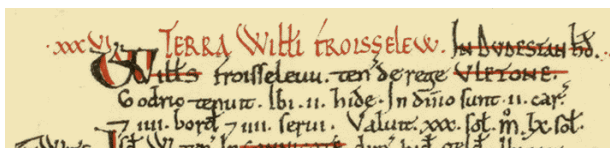 .xxxvi. TERRA Willi troisselew. In Dudestan hd.
Wills troisseleuu. ten de rege VLETONE.
Godric tenuit. Ibi. ii. hide. In dnio sunt. ii. car.
7 iiii. bord 7 iiii. serui. Valuit. xxx. sol. m. lx. sol.